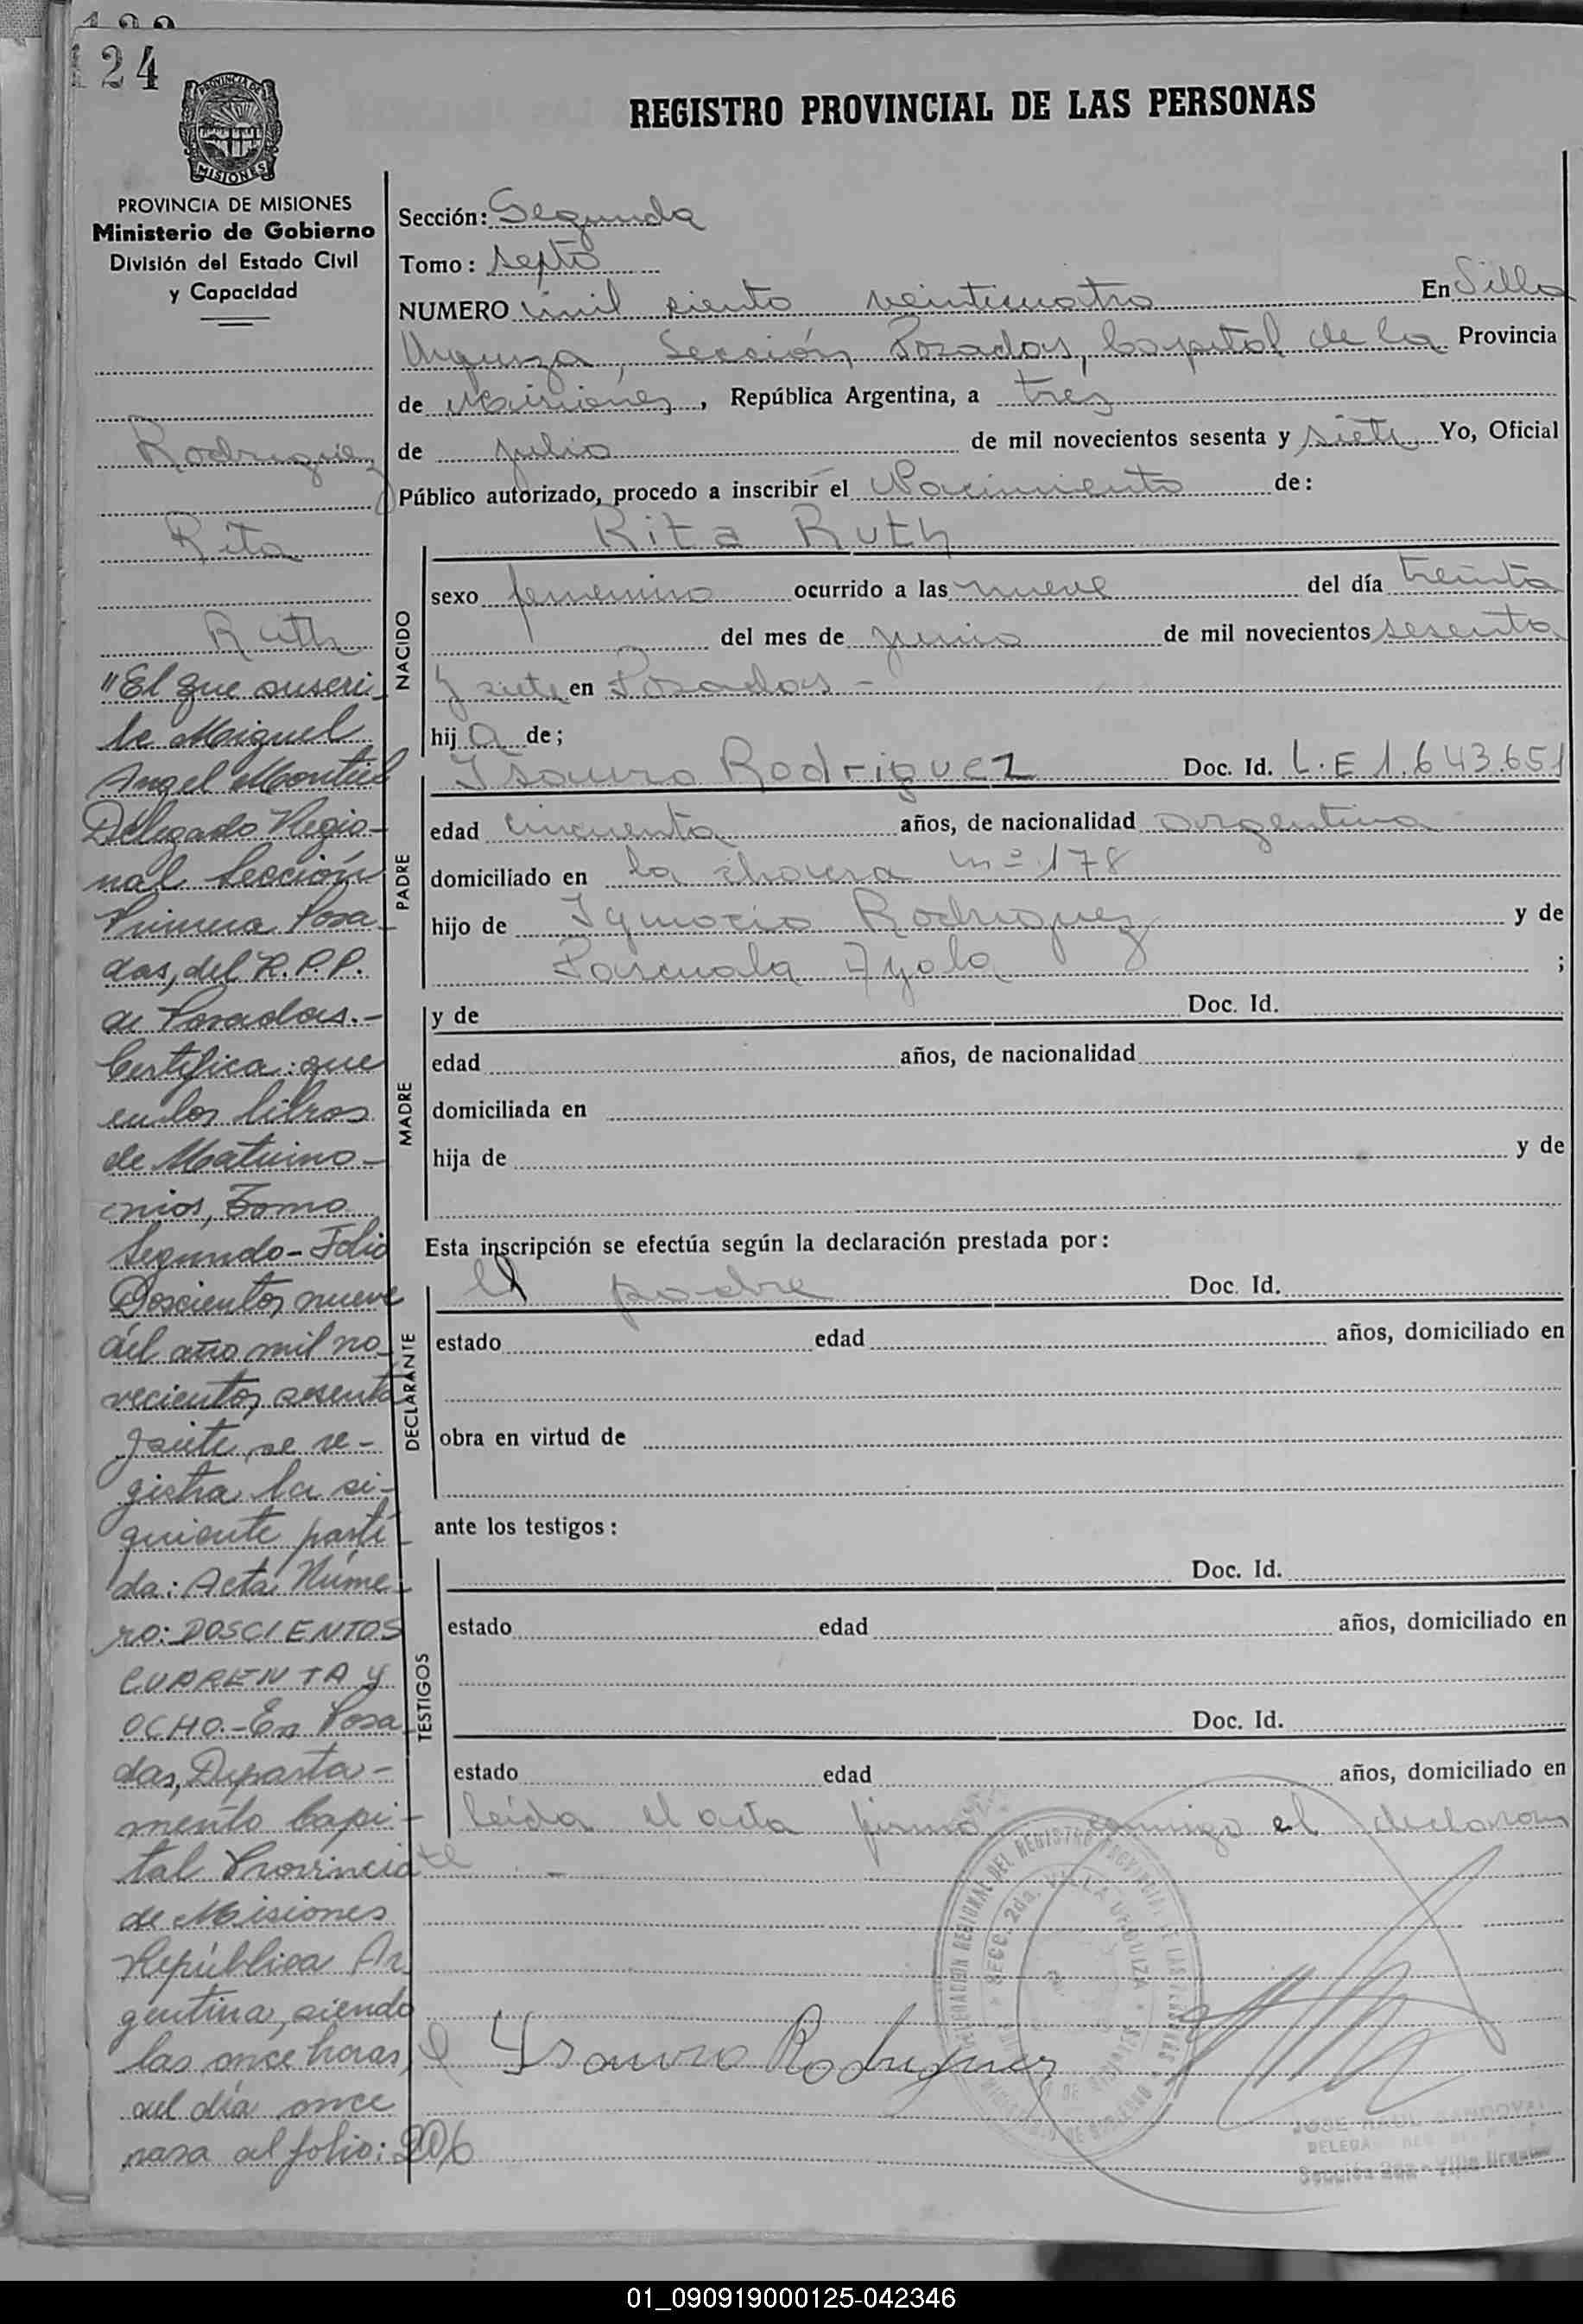 124
PROVINCIA DE MISIONES
REGISTRO PROVINCIAL DE LAS PERSONAS
PROVINCIA DE MISIONES
Ministerio de Gobierno
División del Estado Civil
y Capacidad
Rodriguez
Rita
Ruth
"El que suscri-
be Miguel
Angel Montiel
Delegado Regio-
nal Sección
Primera Posa-
das, del R.P.P.
de Posadas.-
Certifica: que
en los libros
de Matrimo-
nios, Tomo
Segundo - Folio
Doscientos nueve
del año mil no-
vecientos sesenta
y siete, se re-
gistra la si-
guiente parti-
da: Acta Núme-
ro: DOSCIENTOS
CUARENTA Y
OCHO.- En Posa-
das, Departa-
mento Capi-
tal Provincia
de Misiones
República Ar-
gentina, siendo
las once horas,
del día once
pasa al folio: 206
Sección: Segunda
Tomo: septo
NUMERO mil siento veinticuatro En Villa
Urquiza, Sección Posadas, Capital de la Provincia
de Misiones, República Argentina, a tres
de julio de mil novecientos sesenta y siete Yo, Oficial
Público autorizado, procedo a inscribir el Nacimiento de:
NACIDO
Rita Ruth
sexo femenino ocurrido a las nueve del día treinta
del mes de junio de mil novecientos sesenta
y siete en Posadas -
hija de;
PADRE
Isauro Rodriguez Doc. Id. L.E 1.643.651
edad cincuenta años, de nacionalidad argentina
domiciliado en la chacra nº 178
hijo de Ignacio Rodriguez y de
Pascuala Ayala ;
MADRE
y de Doc. Id.
edad años, de nacionalidad
domiciliada en
hija de y de
Esta inscripción se efectúa según la declaración prestada por:
DECLARANTE
el padre Doc. Id.
estado edad años, domiciliado en
obra en virtud de
ante los testigos:
TESTIGOS
Doc. Id.
estado edad años, domiciliado en
Doc. Id.
estado edad años, domiciliado en
leída el acta firma conmigo el declaran
te -
SECC. 2da. VILLA URQUIZA
Ysauro Rodriguez
JOSE RAUL SANDOVAL
Sección 2da - Villa Urquiza
01_090919000125-042346